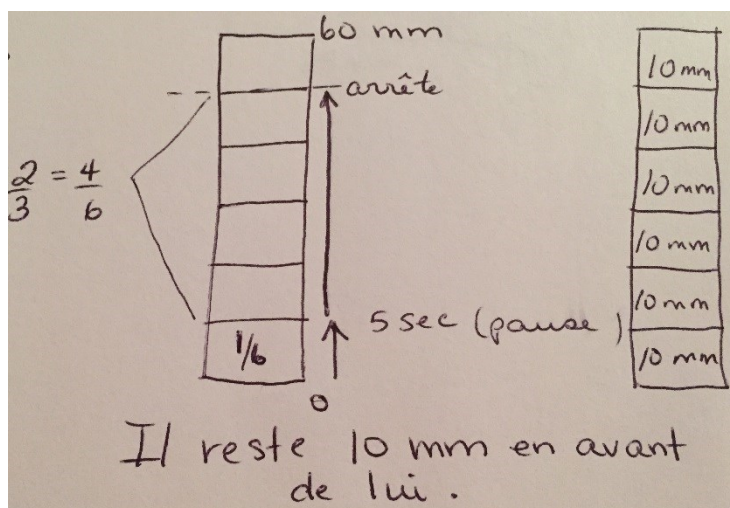 60 mm
arrête
2/3 = 4/6
1/6
5 sec (pause)
0
10 mm
10 mm
10 mm
10 mm
10 mm
10 mm
Il reste 10 mm en avant
de lui.